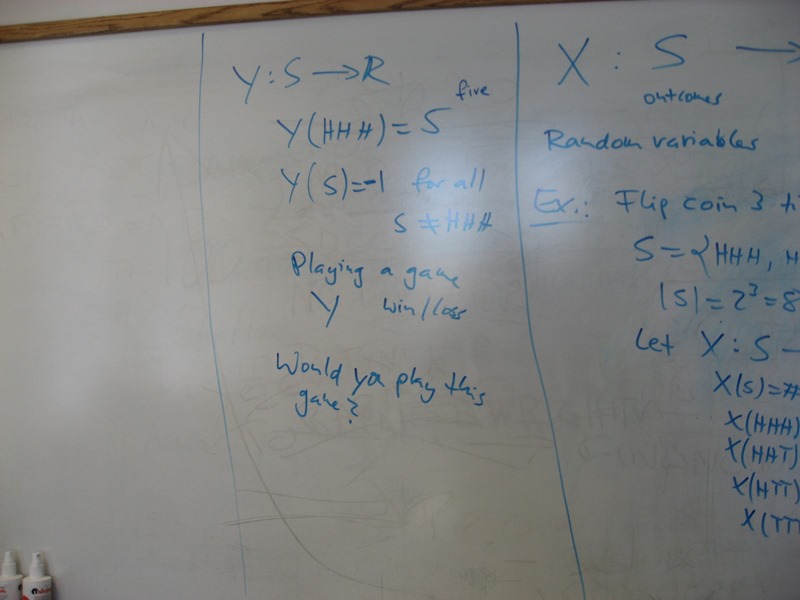 Y : S → R
five
Y(HHH) = 5
Y(s) = -1 for all
s ≠ HHH
Playing a game
Y win/loss
Would you play this
game?
X : S →
outcomes
Random variables
Ex.: Flip coin 3 ti
S = {HHH, H
|S| = 2³ = 8
Let X : S →
X(s) = #
X(HHH)
X(HHT)
X(HTT)
X(TTT